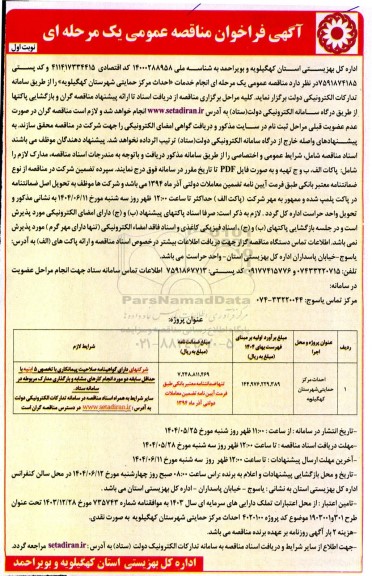 آگهی فراخوان مناقصه عمومی یک مرحله ای
نوبت اول
اداره کل بهزیستی استان کهگیلویه و بویراحمد به شناسه ملی ۱۴۰۰۰۲۸۸۹۵۸ کد اقتصادی ۴۱۱۴۱۷۳۳۴۴۱۵ و کد پستی
۷۵۹۱۸۷۴۱۸۵ در نظر دارد مناقصه عمومی یک مرحله ای انجام خدمات «احداث مرکز حمایتی شهرستان کهگیلویه» را از طریق سامانه
تدارکات الکترونیکی دولت برگزار نماید. کلیه مراحل برگزاری مناقصه از دریافت اسناد تا ارائه پیشنهاد مناقصه گران و بازگشایی پاکتها
از طریق درگاه سامانه الکترونیکی دولت (ستاد) به آدرس www.setadiran.ir انجام خواهد شد و لازم است مناقصه گران در صورت
عدم عضویت قبلی مراحل ثبت نام در سایت مذکور و دریافت گواهی امضای الکترونیکی را جهت شرکت در مناقصه محقق سازند. به
پیشنهادهای واصله خارج از درگاه سامانه الکترونیکی دولت (ستاد) ترتیب اثر داده نخواهد شد. پیشنهاد دهندگان موظف می باشند
اسناد مناقصه شامل، شرایط عمومی و اختصاصی را از طریق سامانه مذکور دریافت و با توجه به مندرجات اسناد مناقصه، مدارک لازم را
شامل: پاکات الف، ب و ج تهیه و به صورت فایل PDF تا تاریخ مقرر در سامانه فوق درج نمایند. سپرده تضمین شرکت در مناقصه از نوع
ضمانتنامه معتبر بانکی طبق فرمت آیین نامه تضمین معاملات دولتی آذر ماه ۱۳۹۴ می باشد و شرکت ها موظف به تحویل اصل ضمانتنامه
در پاکت پلمپ شده و ممهور به مهر شرکت (پاکت الف) حداکثر تا ساعت ۱۲:۰۰ ظهر روز سه شنبه مورخ ۱۴۰۴/۰۶/۱۱ به نشانی مذکور و
تحویل واحد حراست اداره کل گردد. لازم به ذکر است: صرفا اسناد پاکتهای پیشنهاد (ب) و (ج) دارای امضای الکترونیکی مورد پذیرش
است و در جلسه بازگشایی پاکتهای (ب) و (ج)، اسناد فیزیکی کاغذی و اسناد فاقد امضاء الکترونیکی (تنها دارای مهر گرم) مورد پذیرش
نمی باشد. اطلاعات تماس دستگاه مناقصه گزار جهت دریافت اطلاعات بیشتر درخصوص اسناد مناقصه و ارائه پاکت های (الف) به آدرس:
یاسوج-خیابان پاسداران اداره کل بهزیستی استان- واحد حراست می باشد.
تلفن: ۰۷۴۳۳۲۲۰۷۱۵ و ۰۹۱۷۷۴۱۵۷۷۶ کد پستی: ۷۵۹۱۸۶۷۷۱۳ اطلاعات تماس سامانه ستاد جهت انجام مراحل عضویت
در سامانه:
مرکز تماس یاسوج: ۰۷۴-۳۳۲۲۰۰۴۴
عنوان پروژه:
ردیف | عنوان پروژه و محل اجرا | مبلغ برآورد اولیه بر مبنای فهرست بهای ۱۴۰۴ (مبلغ به ریال) | مبلغ ضمانت نامه (مبلغ به ریال) | شرایط لازم
۱ | احداث مرکز حمایتی شهرستان کهگیلویه | ۱۴۴,۹۷۶,۲۲۹,۳۸۹ | ۷,۲۴۸,۸۱۱,۴۶۹ تنها ضمانتنامه معتبر بانکی طبق فرمت آیین نامه تضمین معاملات دولتی آذر ماه ۱۳۹۴ | شرکتهای دارای گواهینامه صلاحیت پیمانکاری با تخصص ۵ ابنیه با حداقل سابقه دو مورد انجام کارهای مشابه و بارگذاری مدارک مربوطه در سامانه ستاد. سایر شرایط به همراه اسناد مناقصه در سامانه تدارکات الکترونیکی دولت به آدرس: www.setadiran.ir در دسترس مناقصه گران است
-تاریخ انتشار در سامانه: از ساعت ۱۱:۰۰ ظهر روز شنبه مورخ ۱۴۰۴/۰۵/۲۵
-مهلت دریافت اسناد مناقصه: تا ساعت ۱۲:۰۰ ظهر روز سه شنبه مورخ ۱۴۰۴/۰۵/۲۸
-آخرین مهلت ارسال پیشنهادات: تا ساعت ۱۲:۰۰ ظهر روز سه شنبه مورخ ۱۴۰۴/۰۶/۱۱
-تاریخ و محل بازگشایی پیشنهادات و اعلام به برنده: راس ساعت ۰۸:۰۰ صبح روز چهارشنبه مورخ ۱۴۰۴/۰۶/۱۲ در محل سالن کنفرانس
اداره کل بهزیستی استان به نشانی: یاسوج- خیابان پاسداران- اداره کل بهزیستی استان می باشد.
-تامین اعتبار: از محل اعتبارات تملک دارایی های سرمایه ای سال ۱۴۰۳ به موافقتنامه شماره ۷۳۵۷۴۳ مورخ ۱۴۰۳/۱۲/۲۸ تحت عنوان
طرح ۱۹۰۳۰۰۱ موضوع کد پروژه ۴۰۲۰۱۰۰ احداث مرکز حمایتی شهرستان کهگیلویه به صورت نقدی.
-هزینه ۲ بار آگهی روزنامه بر عهده برنده مناقصه می باشد.
-جهت اطلاع از سایر شرایط و دریافت اسناد مناقصه به سامانه تدارکات الکترونیک دولت (ستاد) به آدرس: setadiran.ir مراجعه گردد.
اداره کل بهزیستی استان کهگیلویه و بویراحمد
ParsNamadData
۰۲۱-۸۸۳۴۹۶۷۰